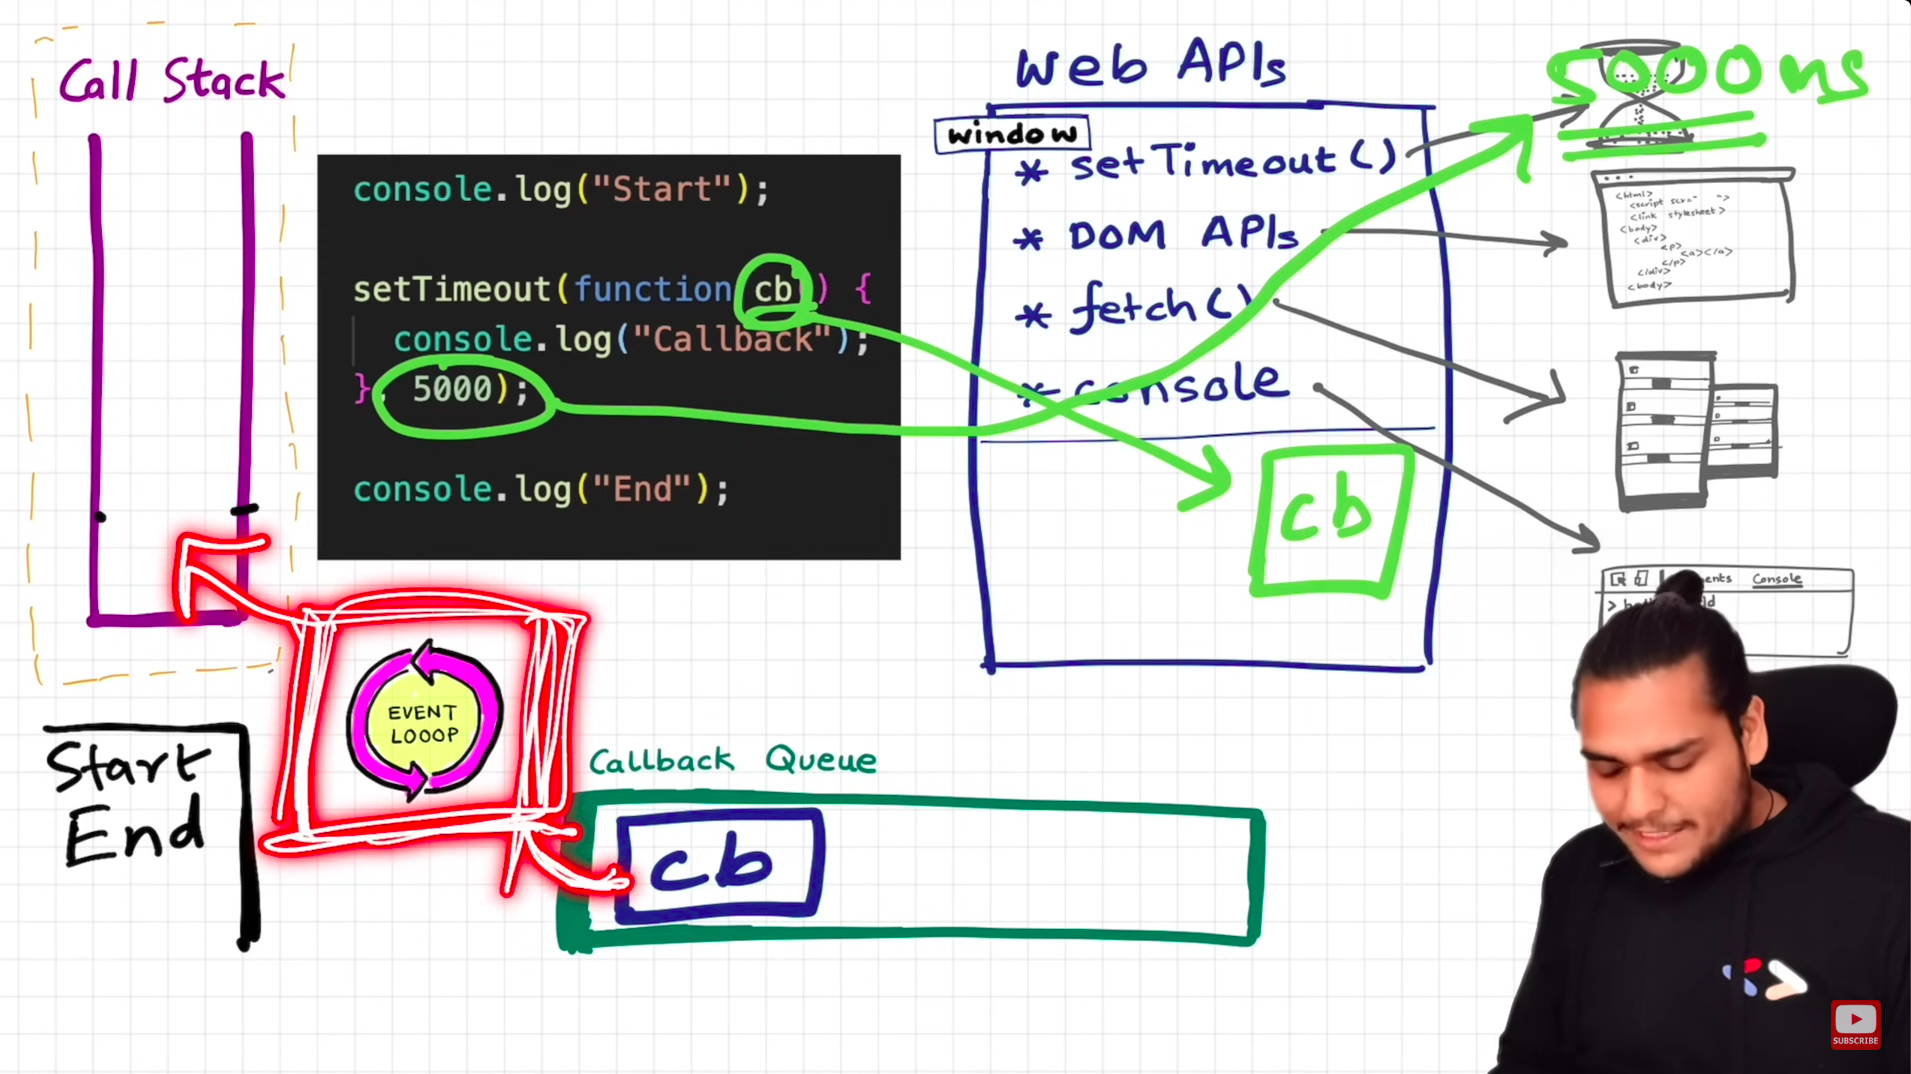 Call Stack
console.log("Start");
setTimeout(function cb() {
console.log("Callback");
}, 5000);
console.log("End");
Web APIs
window
* setTimeout()
* DOM APIs
* fetch()
* console
cb
5000 ms
<html>
<script src=" ">
<link stylesheet>
<body>
<div>
<p>
<a></a>
</p>
</div>
<body>
Console
>
EVENT
LOOOP
Start
End
Callback Queue
cb
SUBSCRIBE